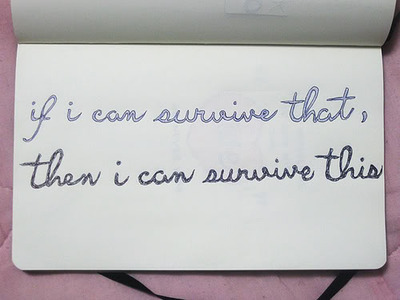 if i can survive that,
then i can survive this